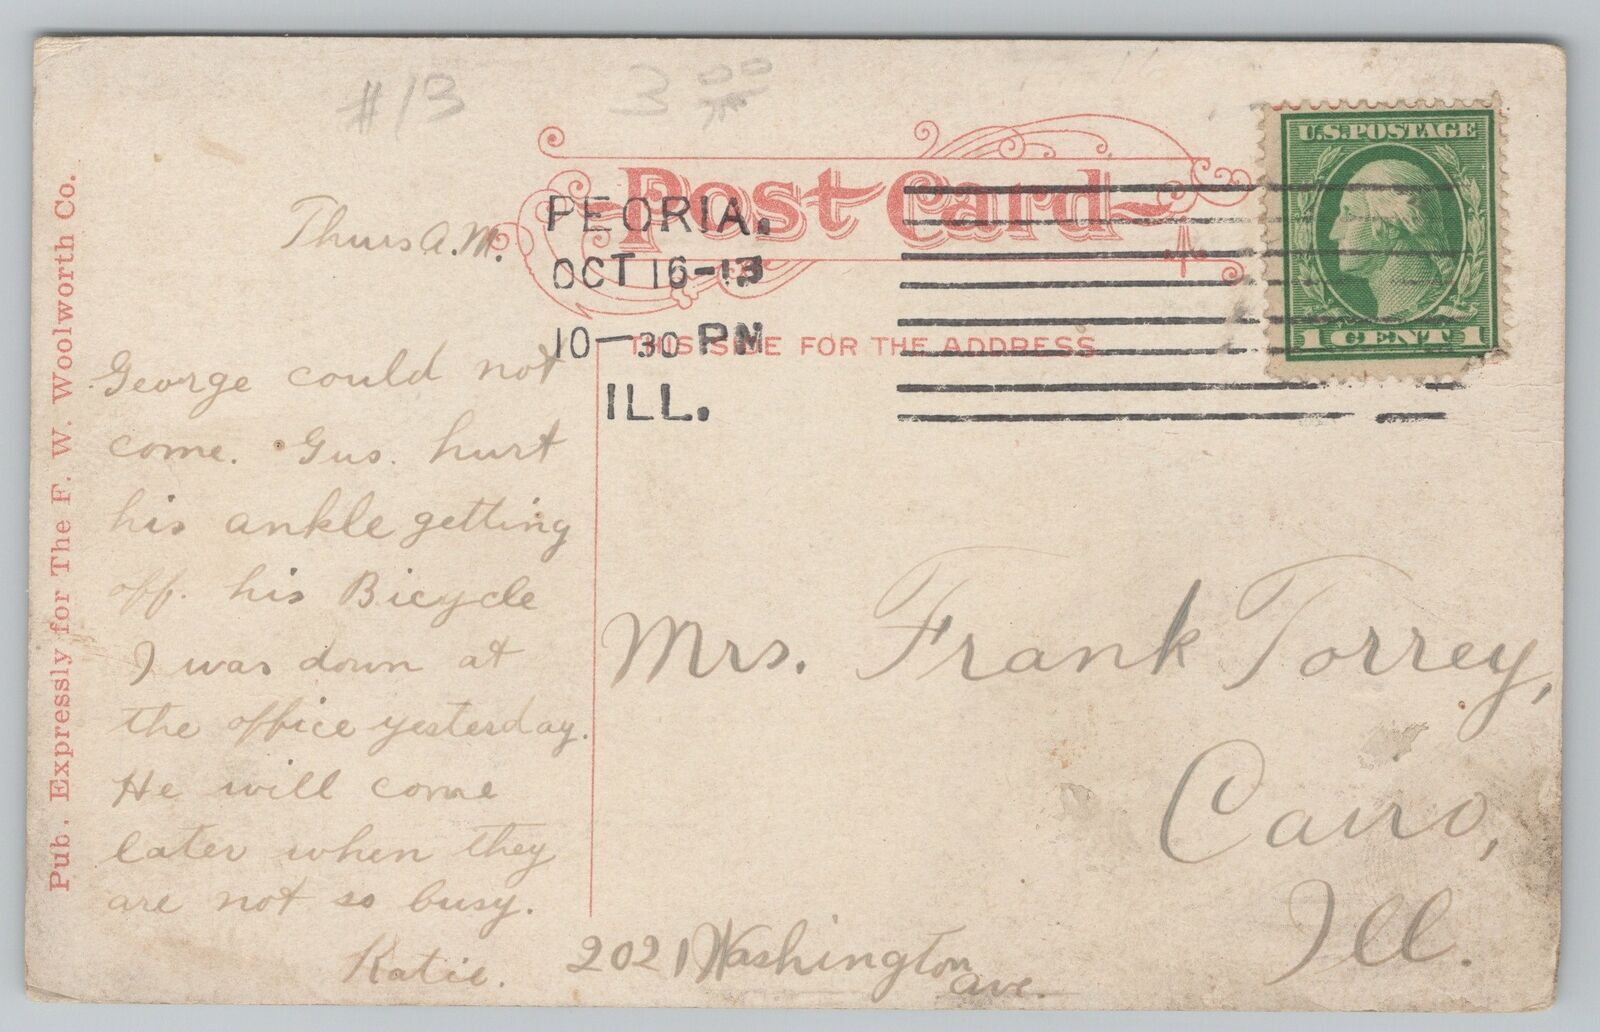 #13
3 00
Post Card
PEORIA.
OCT 16-13
10-30 PM
ILL.
THIS SIDE FOR THE ADDRESS
U.S. POSTAGE
1 CENT 1
Pub. Expressly for The F. W. Woolworth Co.
Thurs A.M.
George could not
come. Gus. hurt
his ankle getting
off. his Bicycle
I was down at
the office yesterday.
He will come
later when they
are not so busy.
Katie.
Mrs. Frank Torrey,
Cairo,
Ill.
2021 Washington
ave.